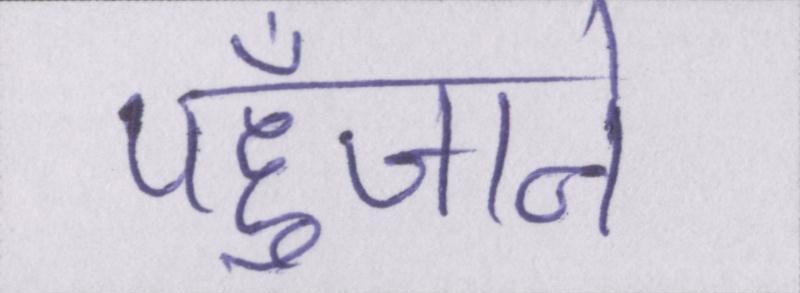 पहुँजाने